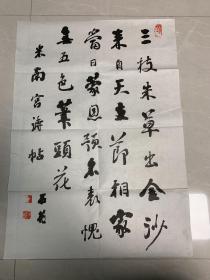 三枝朱草出金沙
来自天支节相家
当日蒙恩预名表愧
无五色笔头花
米南宫诗帖